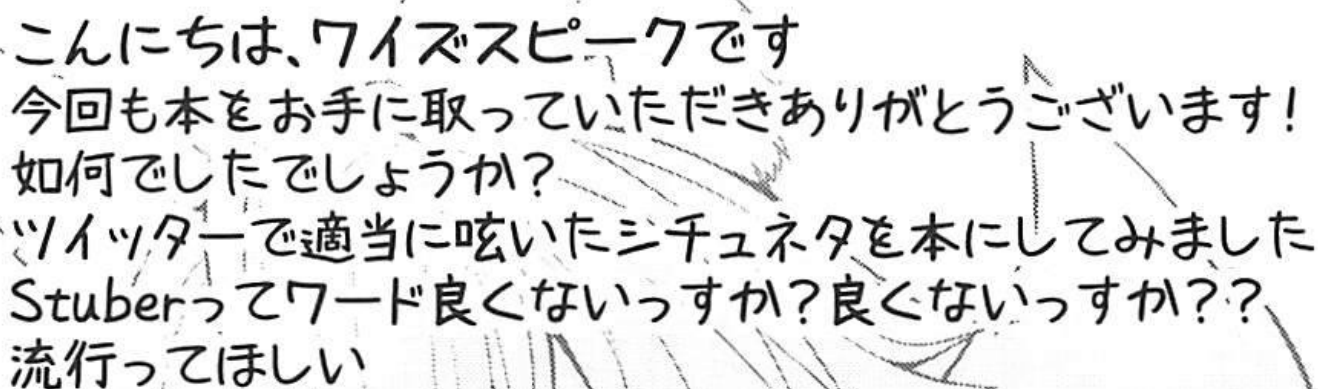 こんにちは、ワイズスピークです
今回も本をお手に取っていただきありがとうございます!
如何でしたでしょうか?
ツイッターで適当に呟いたシチュネタを本にしてみました
Stuberってワード良くないっすか?良くないっすか??
流行ってほしい